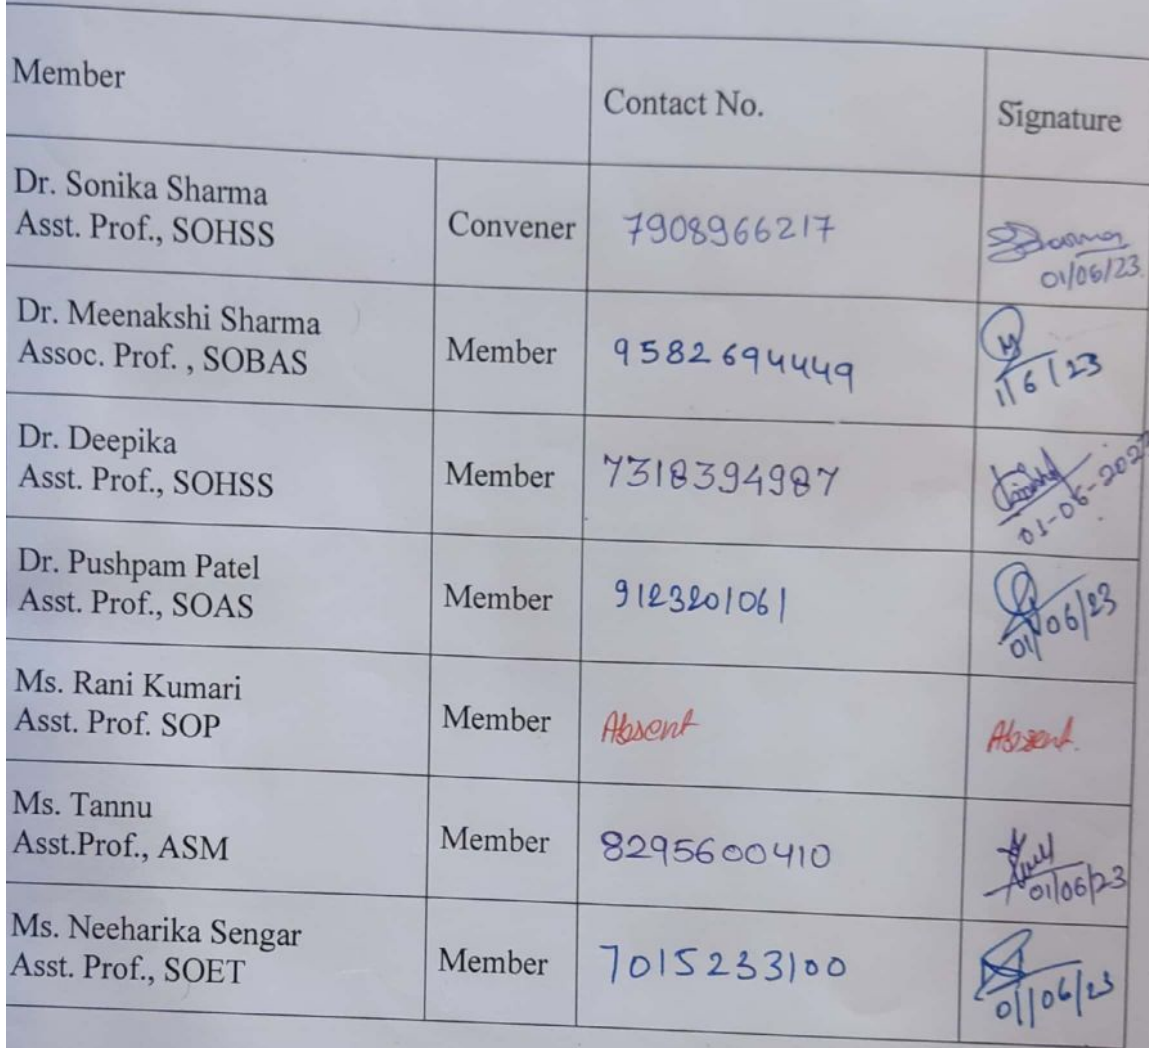 Member
Contact No.
Signature
Dr. Sonika Sharma
Asst. Prof., SOHSS
Convener
7908966217
Sharma
01/06/23.
Dr. Meenakshi Sharma
Assoc. Prof. , SOBAS
Member
9582694449
1/6/23
Dr. Deepika
Asst. Prof., SOHSS
Member
7318394987
01-06-2023
Dr. Pushpam Patel
Asst. Prof., SOAS
Member
9123201061
01/06/23
Ms. Rani Kumari
Asst. Prof. SOP
Member
Absent
Absent.
Ms. Tannu
Asst.Prof., ASM
Member
8295600410
01/06/23
Ms. Neeharika Sengar
Asst. Prof., SOET
Member
7015233100
01/06/23